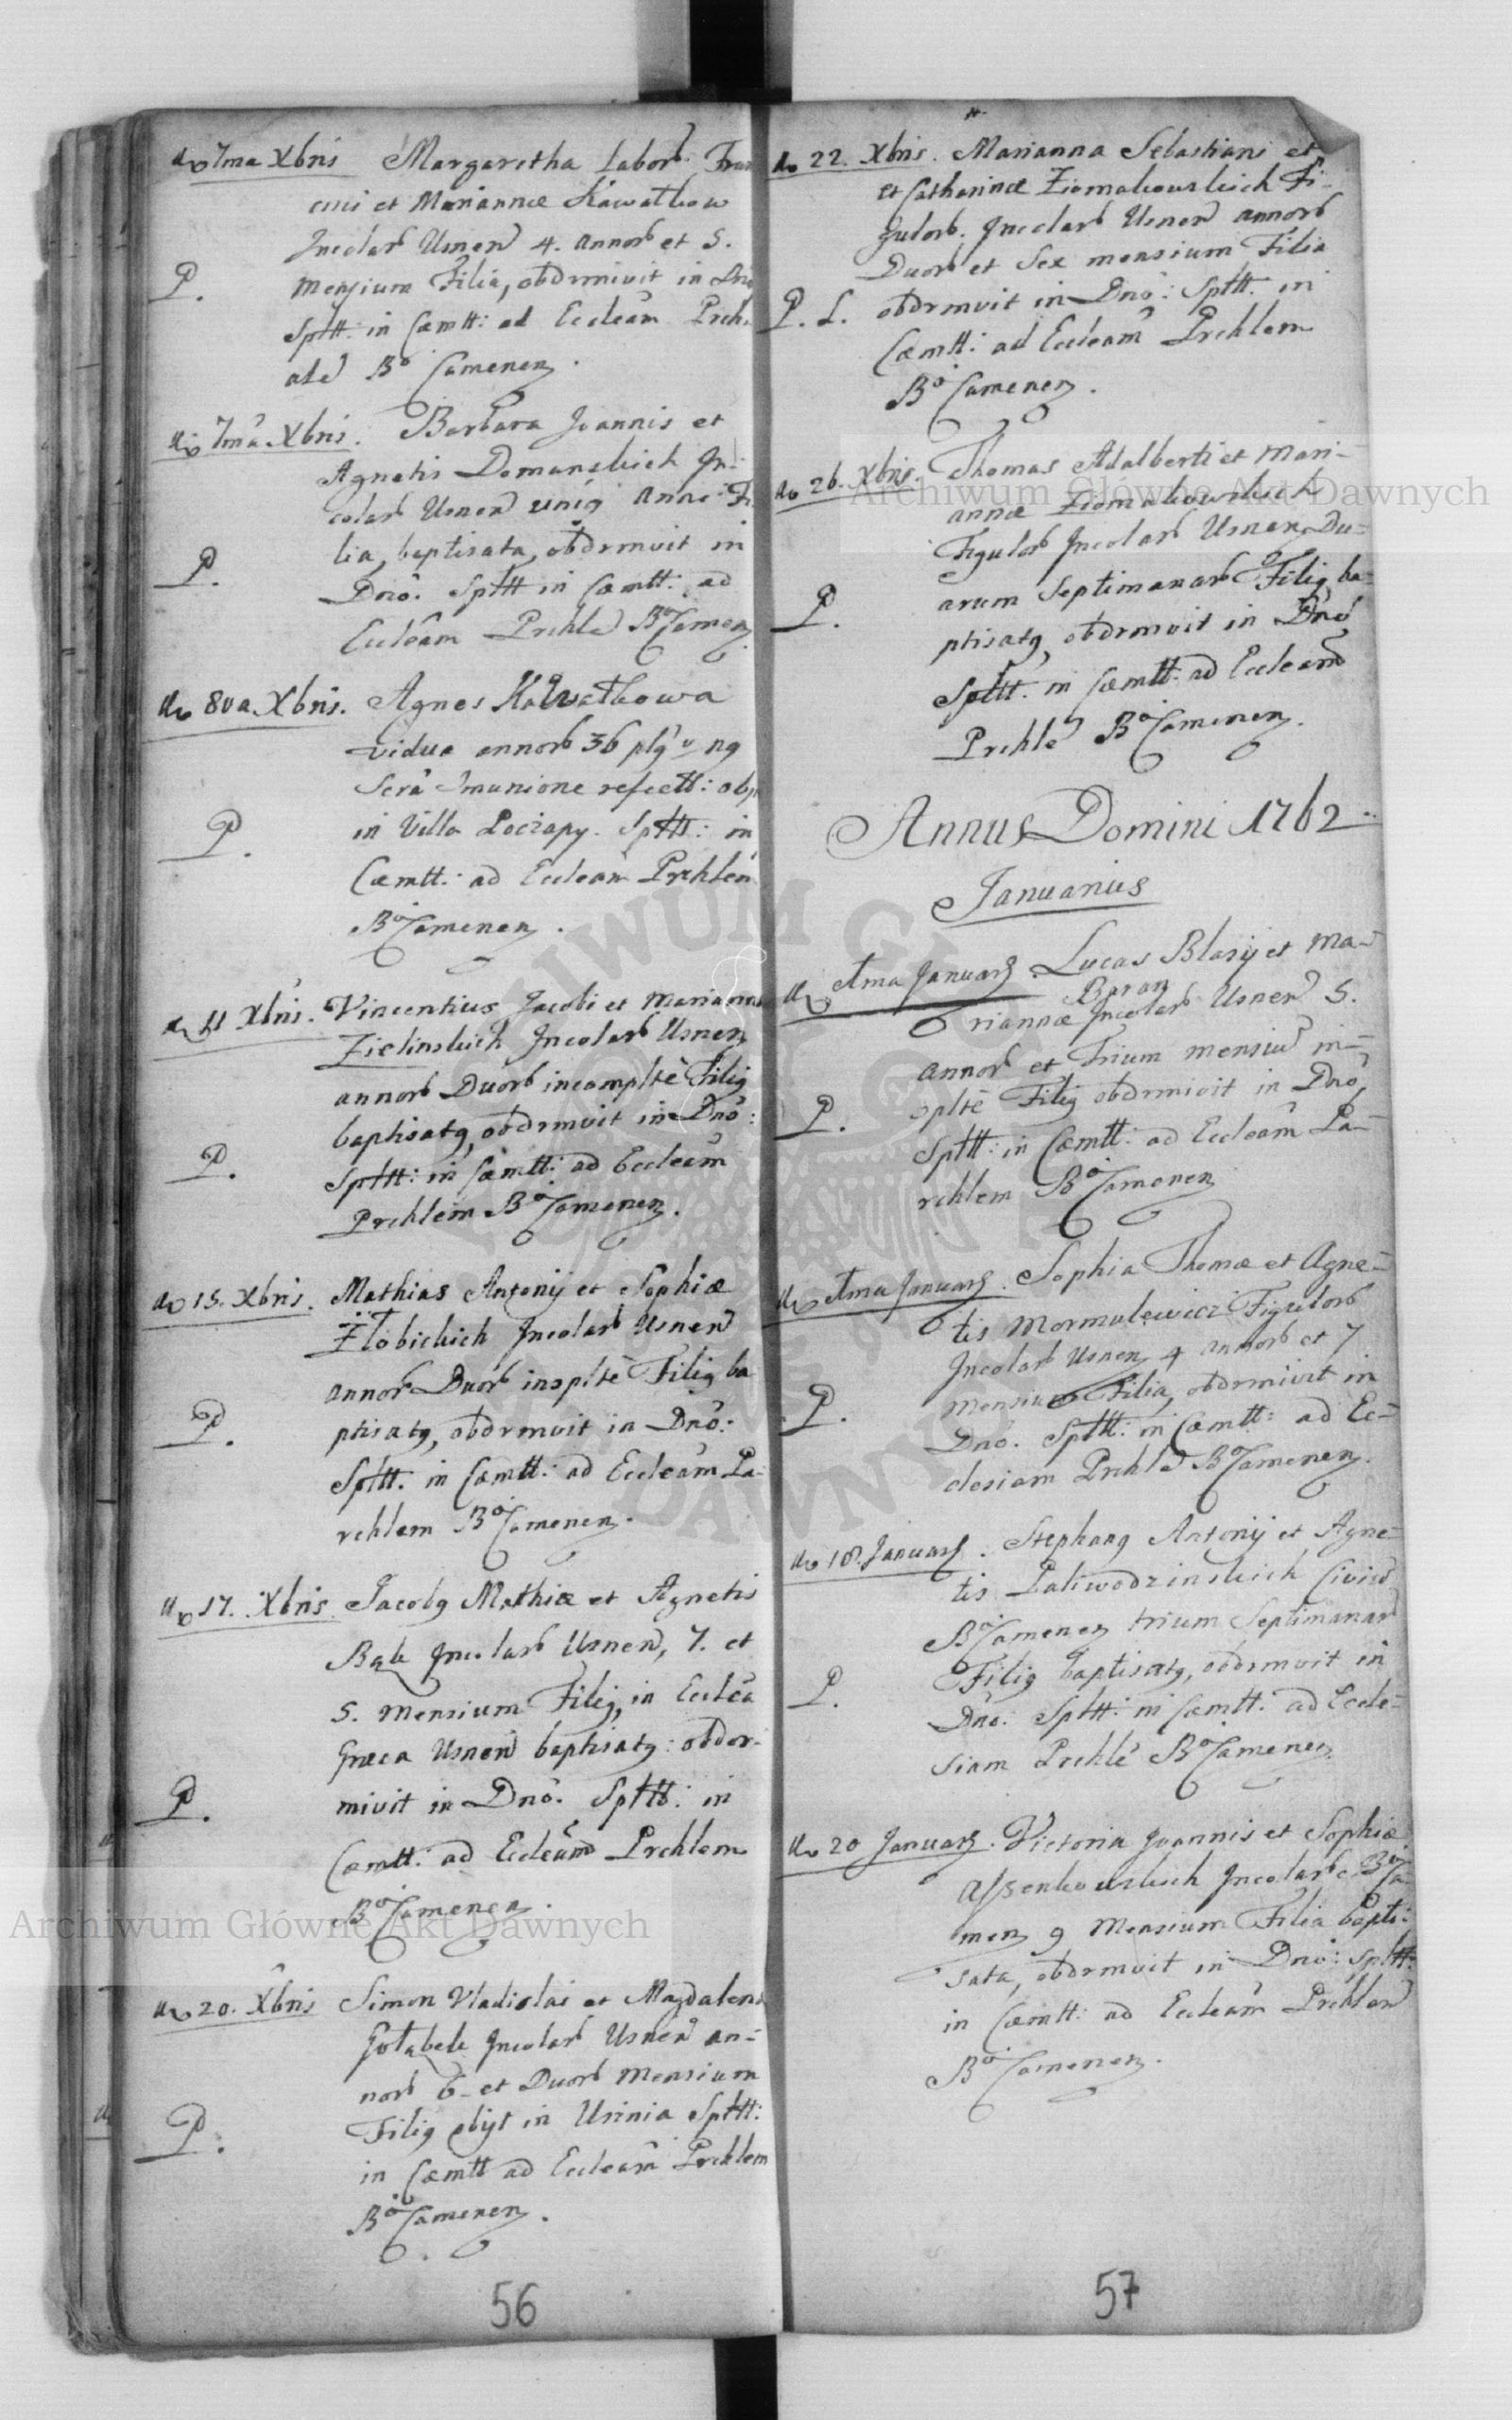 do 7ma Xbris Margaretha Labor. Fran
cisci et Mariannæ Kawałkow
Incolarb Usnen 4. annorb et 5.
P. mensium Filia, obdrmivit in Dno
Spltt: in Cæmtt: ad Eccleam Prch.
ale Bo Camenen.
do 7ma Xbris. Barbara Joannis et
Agnetis Domanskich In-
colarb Usnen unig anni Fi
lia, baptisata, obdrmvit in
P. Dno. Spltt in Cæmtt: ad
Eccleam Prchle Bo Camen
do 8va. Xbris. Agnes Kawałkowa
vidua annorb 36 plg v ng
Scra Cmunione refectt: obyt
P. in Villa Poczapy. Spltt: in
Cæmtt: ad Eccleam Prchlem
Bo Camenen.
do 11 Xbris. Vincentius Jacobi et Marianna
Zielinskich Incolarb Usnen
annorb Duorb incomplte Filig
baptisatg, obdrmvit in Dno:
P. Spltt: in Cæmtt: ad Eccleam
Prchlem Bo Camenen.
do 15. Xbris. Mathias Antonij et Sophiæ
Złobickich Incolarb Usnen
annorb Duorb inoplte Filig ba
P. ptisatg, obdrmvit in Dno:
Spltt. in Cæmtt: ad Eccleam Pa-
rchlem Bo Camenen.
do 17. Xbris Jacobg Mathiæ et Agnetis
Bąk Incolarb Usnen, 7. et
5. mensium Filig, in Ecclea
Græca Usnen baptisatg: obdor-
P. mivit in Dno. Spltt: in
Cæmtt: ad Eccleam Prchlem
Bo Camenen.
do 20. Xbris Simon Vladislai et Magdalena
Gołąbek Incolarb Usnen an-
norb 6 et Duorb Mensium
P. Filig obijt in Usinia Spltt:
in Cæmtt ad Eccleam Prchlem
Bo Camenen.
56
do 22. Xbris. Marianna Sebastiani et
et Catharinæ Ziomakowskich Fi-
gulorb. Incolarb Usnen annorb
Duorb et Sex mensium Filia
P. L. obdrmvit in Dno: Spltt. in
Cæmtt: ad Eccleam Prchlem
Bo Camenen.
do 26. Xbris. Thomas Adalberti et Mari-
annæ Ziomakowskich
Figulorb Incolarb Usnen Du-
arum Septimanarb Filig ba-
P. ptisatg, obdrmvit in Dno
Spltt. in Cæmtt: ad Eccleam
Prchle Bo Camenen.
Annus Domini 1762
Januarius
do 1ma Januarij. Lucas Blasij et Ma-
Baran
riannæ Incolarb Usnen 5.
annorb et Trium mensium in-
P. oplte Filig obdrmivit in Dno,
Spltt: in Cæmtt: ad Eccleam Pa-
rchlem Bo Camenen
do 1ma Januarij. Sophia Thomæ et Agne-
tis Mormulewicz Figulorb
Incolarb Usnen 4 annorb et 7
P. mensium Filia, obdrmivit in
Dno. Spltt: in Cæmtt: ad Ec-
clesiam Prchle Bo Camenen.
do 18. Januarij. Stephang Antonij et Agne-
tis Paliwodzinskich Civium
Bo Camenen trium Septimanarb
P. Filig baptisatg, obdrmvit in
Dno: Spltt: in Cæmtt: ad Eccle-
siam Prchle Bo Camenen
do 20 Januarij. Victoria Joannis et Sophiæ
Assenkowskich Incolarb Bo Ca-
men 9 Mensium Filia bapti-
sata, obdrmvit in Dno: Spltt:
in Cæmtt: ad Eccleam Prchlem
Bo Camenen.
57
Archiwum Główne Akt Dawnych
Archiwum Główne Akt Dawnych